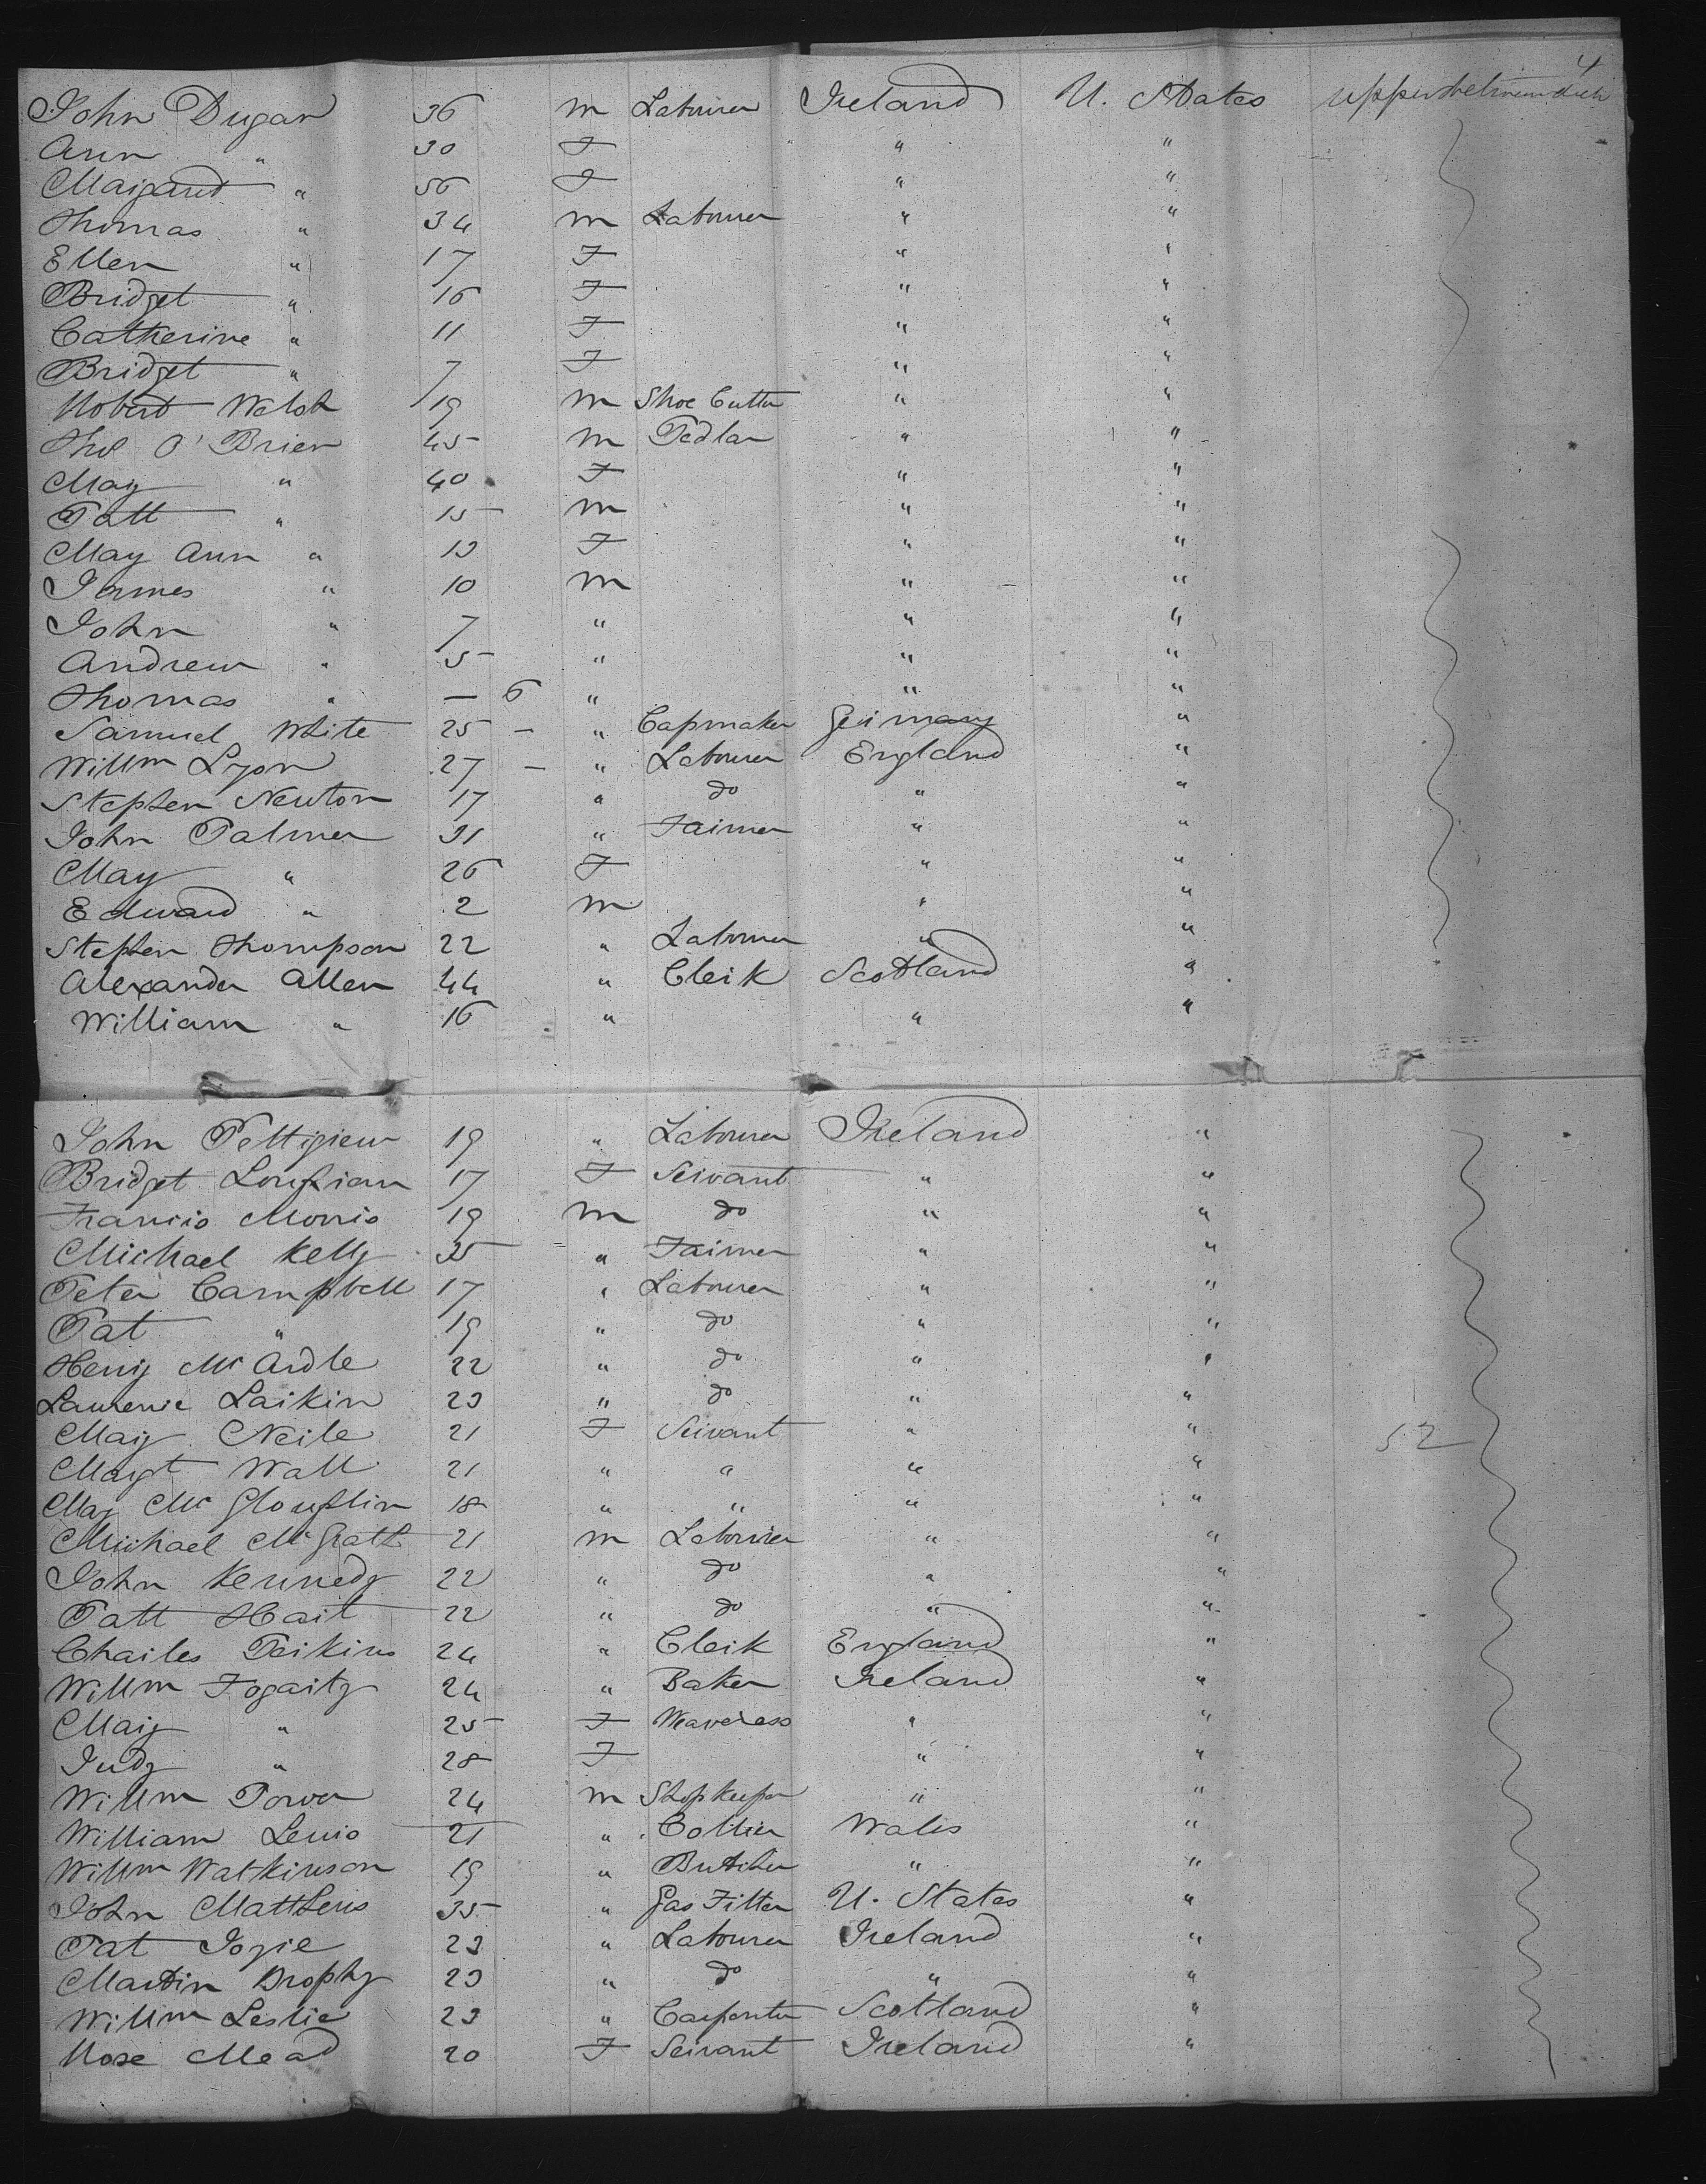 4
John Dugan 36 m Labourer Ireland U. States upper between deck
Ann " 30 F " "
Margaret " 56 F " "
Thomas " 34 m Labourer " "
Ellen " 17 F " "
Bridget " 16 F " "
Catherine " 11 F " "
Bridget " 7 F " "
Robert Walsh 19 m Shoe Cutter " "
Thos O'Brien 45 m Pedlar " "
Mary " 40 F " "
Patt " 15 m " "
Mary Ann " 13 F " "
James " 10 m " "
John " 7 " " "
Andrew " 5 " " "
Thomas " — 6 " " "
Samuel White 25 — " Capmaker Germany "
Willm Lyon 27 — " Labourer England "
Stephen Newton 17 " do " "
John Palmer 31 " Farmer " "
Mary " 26 F " "
Edward " 2 m " "
Stephen Thompson 22 " Labourer " "
Alexander Allen 44 " Clerk Scotland "
William " 16 " " "
John Pettigrew 19 " Labourer Ireland "
Bridget Loughran 17 F Servant " "
Francis Morris 19 m do " "
Michael Kelly 35 " Farmer " "
Peter Campbell 17 " Labourer " "
Pat " 19 " do " "
Henry Mc Ardle 22 " do " "
Laurence Larkin 23 " do " "
Mary Neile 21 F Servant " " 52
Margt Wall 21 " " " "
Mary Mc Gloughlin 18 " " " "
Michael McGrath 21 m Labourer " "
John Kennedy 22 " do " "
Patt Hart 22 " do " "
Charles Perkins 24 " Clerk England "
Willm Fogarty 24 " Baker Ireland "
Mary " 25 F Weaveress " "
Judy " 28 F " "
Willm Power 24 m Shopkeeper " "
William Lewis 21 " Collier Wales "
Willm Watkinson 19 " Butcher " "
John Matthews 35 " Gas Fitter U. States "
Pat Joyce 23 " Labourer Ireland "
Martin Brophy 23 " do " "
Willm Leslie 23 " Carpenter Scotland "
Rose Mead 20 F Servant Ireland "